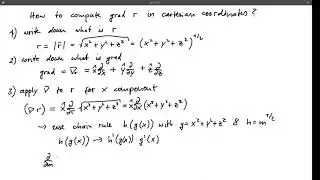 How to compute grad r in cartesian coordinates?
1) write down what is r
r = |r⃗| = √(x²+y²+z²) = (x²+y²+z²)^(1/2)
2) write down what is grad
grad = ∇⃗ = x̂ ∂/∂x + ŷ ∂/∂y + ẑ ∂/∂z
3) apply ∇⃗ to r for x component
(∇⃗ r) = x̂ ∂/∂x √(x²+y²+z²) = x̂ ∂/∂x (x²+y²+z²)
→ use chain rule h(g(x)) with g = x²+y²+z² & h = m^(1/2)
h(g(x)) → h'(g(x)) · g'(x)
∂/∂m